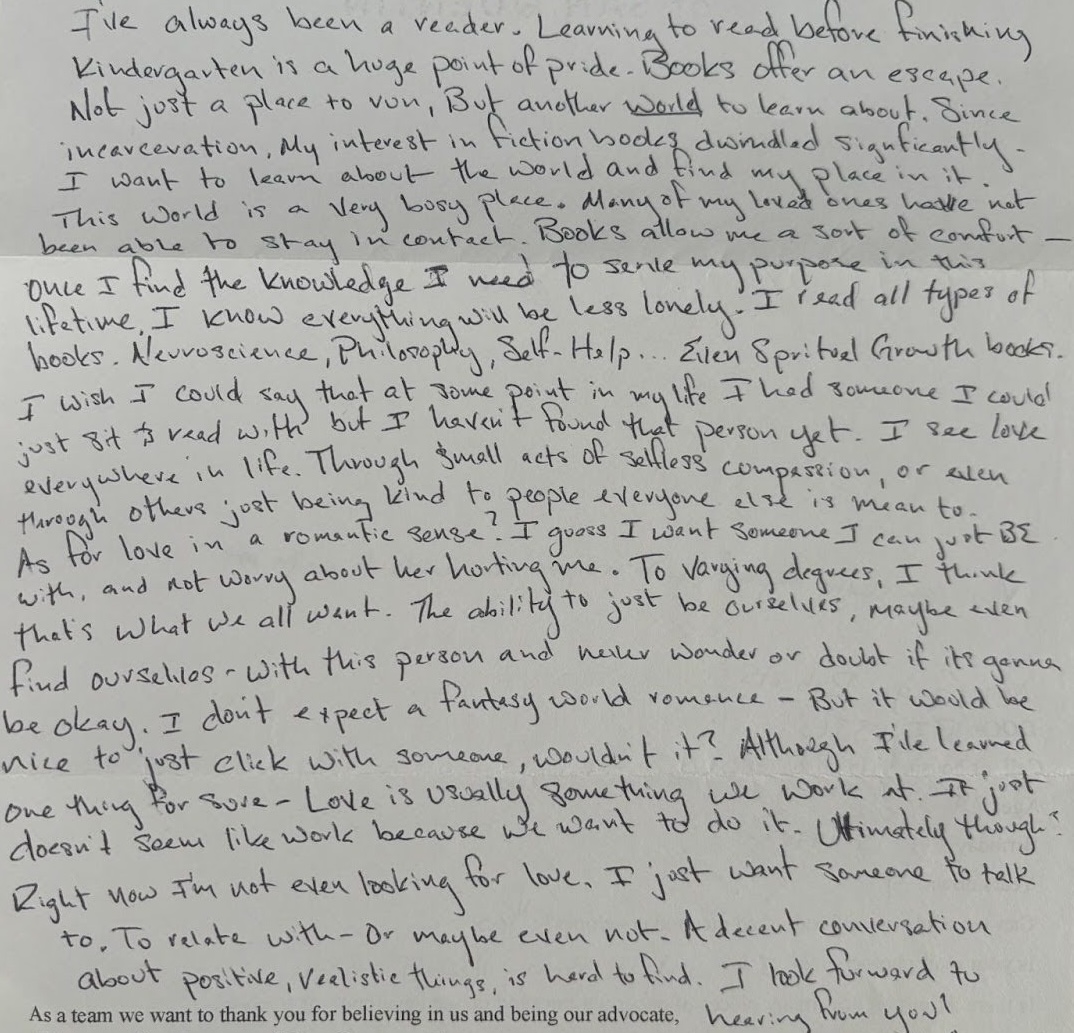 I've always been a reader. Learning to read before finishing
Kindergarten is a huge point of pride. Books offer an escape.
Not just a place to run, But another world to learn about. Since
incarceration, My interest in fiction books dwindled signficantly.
I want to learn about the world and find my place in it.
This world is a very busy place. Many of my loved ones have not
been able to stay in contact. Books allow me a sort of comfort —
once I find the knowledge I need to serve my purpose in this
lifetime, I know everything will be less lonely. I read all types of
books. Neuroscience, Philosophy, Self-Help... Even Spritual Growth books.
I wish I could say that at some point in my life I had someone I could
just sit & read with but I haven't found that person yet. I see love
everywhere in life. Through small acts of selfless compassion, or even
through others just being kind to people everyone else is mean to.
As for love in a romantic sense? I guess I want someone I can just BE
with, and not worry about her hurting me. To varying degrees, I think
that's what we all want. The ability to just be ourselves, maybe even
find ourselves - with this person and never wonder or doubt if its gonna
be okay. I don't expect a fantasy world romance - But it would be
nice to just click with someone, wouldn't it? Although I've learned
one thing for sure - Love is usually something we work at. It just
doesn't seem like work because we want to do it. Ultimately though?
Right now I'm not even looking for love. I just want someone to talk
to. To relate with - Or maybe even not. A decent conversation
about positive, realistic things, is hard to find. I look forward to
As a team we want to thank you for believing in us and being our advocate, hearing from you!